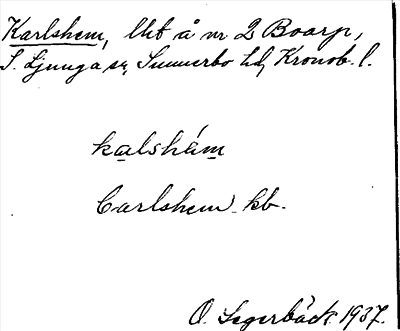 Karlshem, lht å nr 2 Boarp,
S. Ljunga sn, Sunnerbo hd, Kronob. l.
kalshám
Carlshem kb.
O. Segerbäck 1937.